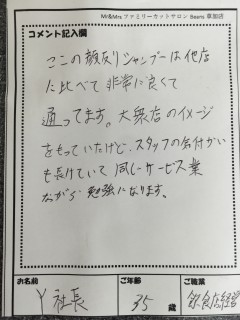 Mr&Mrs ファミリーカットサロン Beans 草加店
コメント記入欄
ここの顔反りシャンプーは他店
に比べて非常に良くて
通ってます。大衆店のイメージ
をもっていたけど、スタッフの気付かい
も長けていて同じサービス業
ながら勉強になります。
お名前 ご年齢 ご職業
Y社長 35歳 飲食店経営